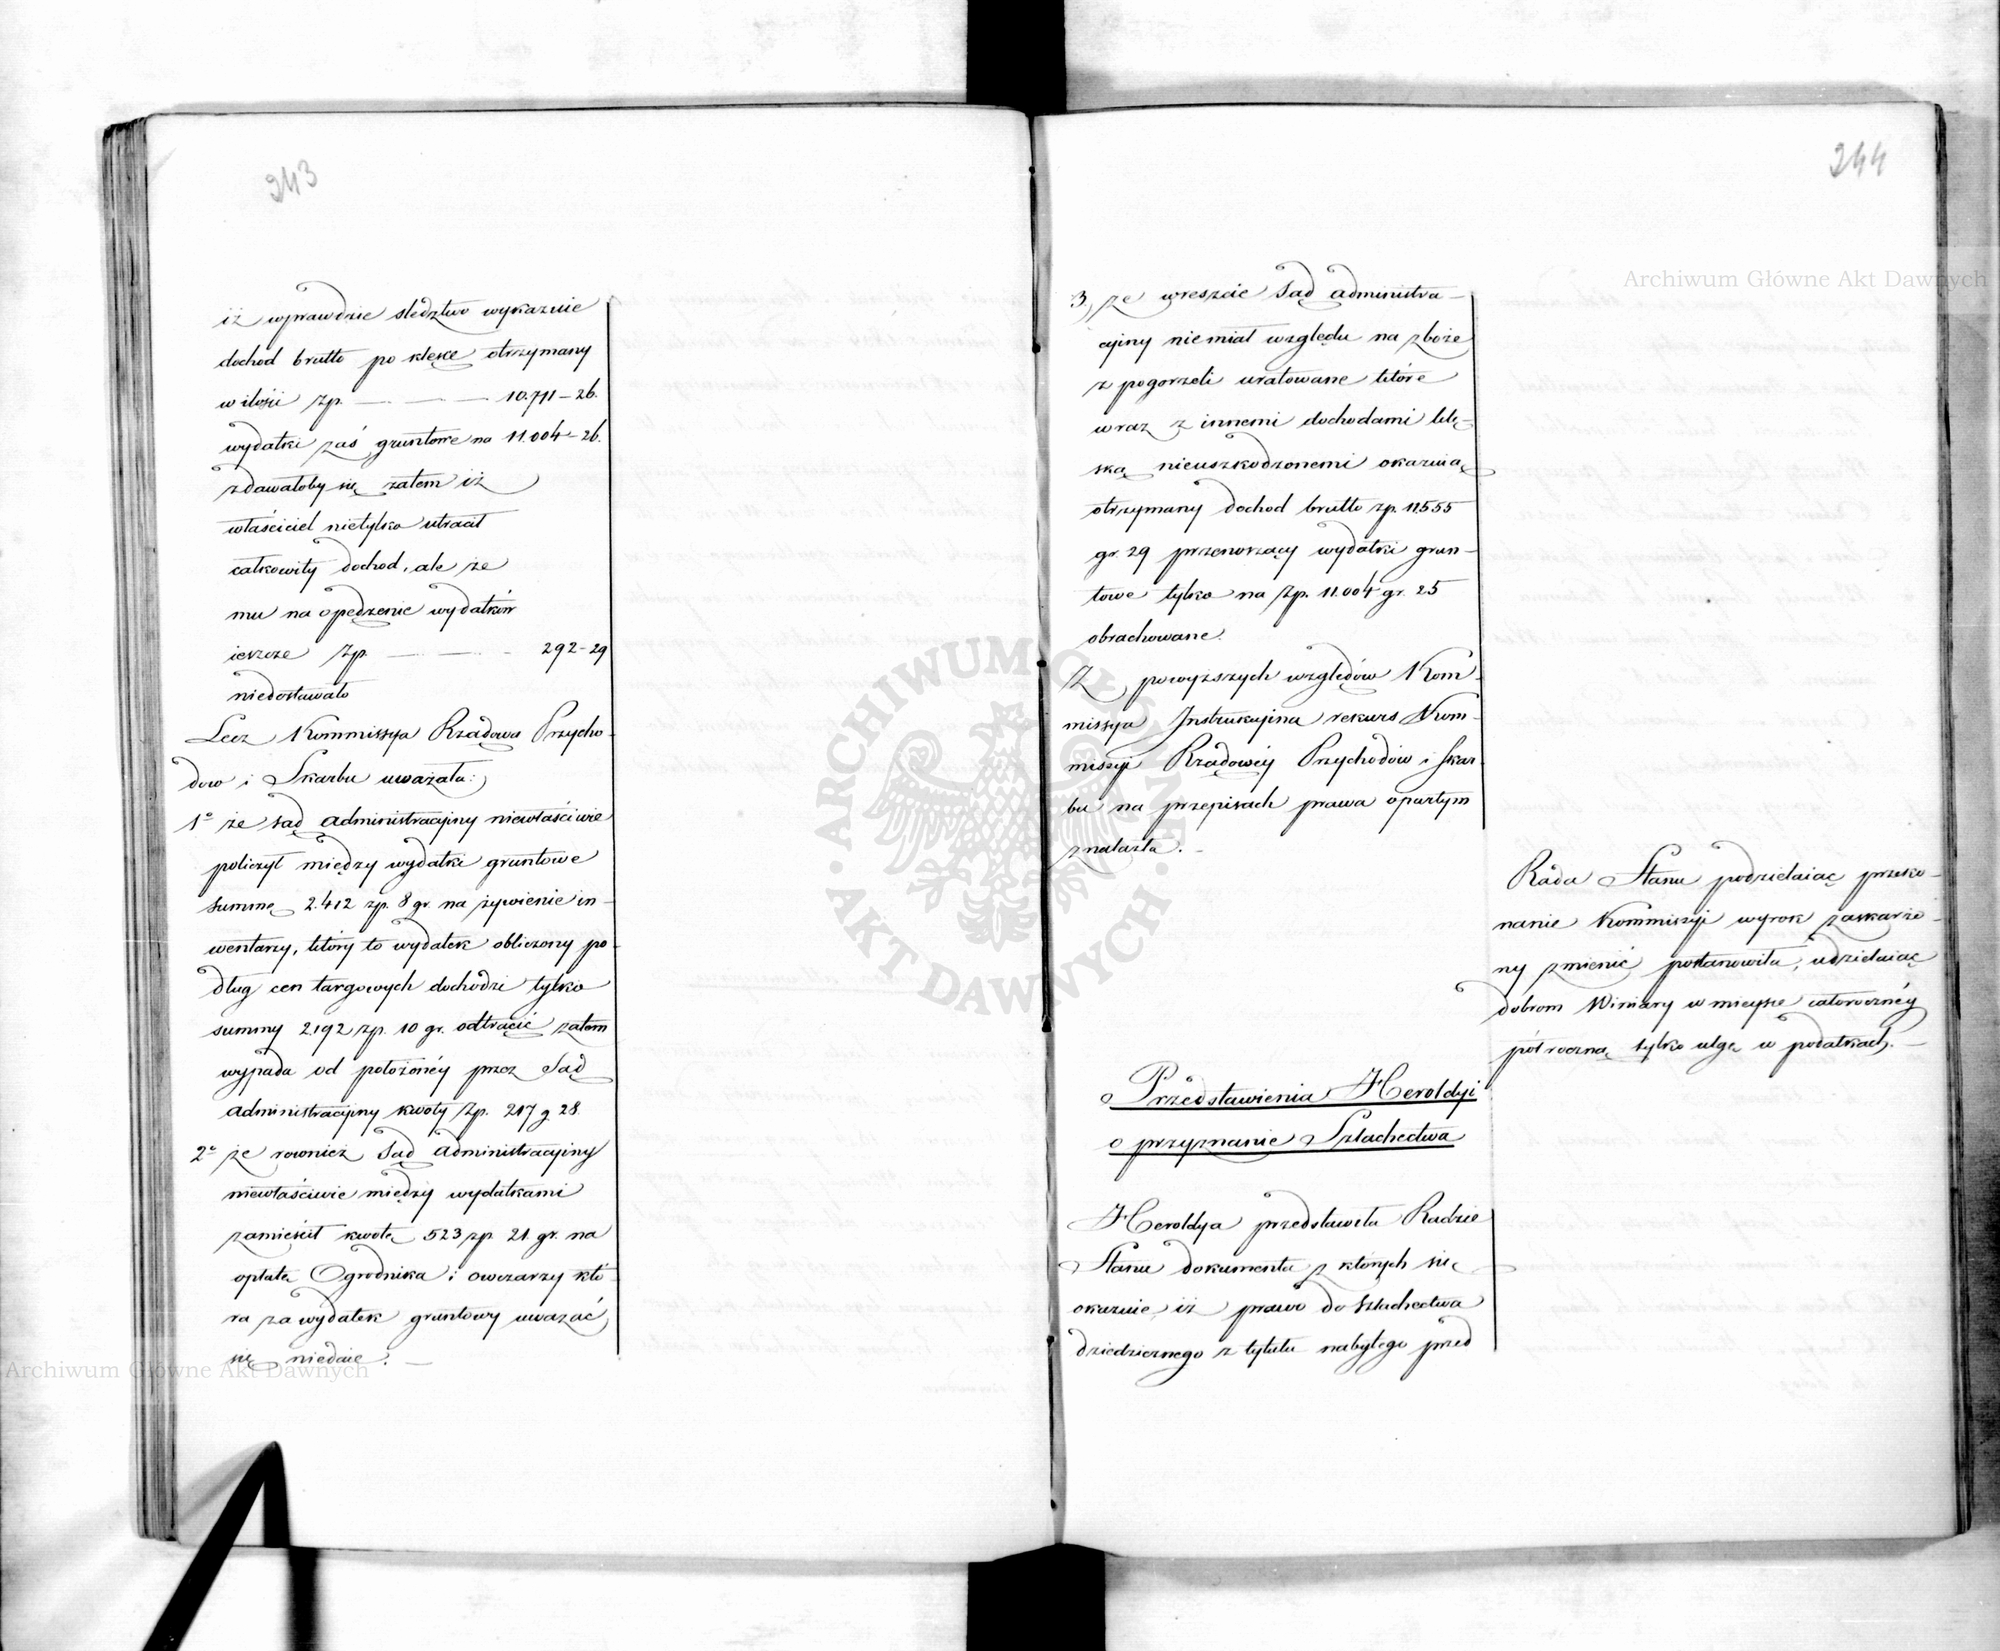 243
iż wprawdzie sledztwo wykazuie
dochod brutto po klęsce otrzymany
w ilości zp. — — — 10.711 – 26.
wydatki zaś gruntowe na 11.004 – 26.
zdawałoby się zatem iż
właściciel nietylko utracił
całkowity dochod, ale że
mu na opędzenie wydatków
ieszcze zp. — — — 292 – 29
niedostawało
Lecz Kommissya Rządowa Przycho-
dow i Skarbu uważała:
1° że sąd administracyiny niewłaściwie
policzył między wydatki gruntowe
summę 2.412 zp. 8 gr. na żywienie in-
wentarzy, który to wydatek obliczony po-
dług cen targowych dochodzi tylko
summy 2.192 zp. 10 gr. odtrącić zatem
wypada od położonéy przez Sąd
administracyiny kwoty zp. 217 g 28.
2° że rownież Sąd administracyiny
niewłaściwie między wydatkami
zamieścił kwotę 523 zp 21. gr. na
opłatę Ogrodnika i owczarzy któ-
ra za wydatek gruntowy uważać
się niedaie. —
244
3, że wreszcie Sąd administra-
cyiny niemiał względu na zboże
z pogorzeli uratowane które
wraz z innemi dochodami klę-
ską nieuszkodzonemi okazuią
otrzymany dochod brutto zp. 11.555
gr. 29 przenoszący wydatki grun-
towe tylko na zp. 11.004 gr. 25
obrachowane.
Z powyższych względów Kom-
missya Instrukcyina rekurs Kom-
missyi Rządowéy Przychodów i Skar-
bu na przepisach prawa opartym
znalazła. —
Rada Stanu podzielaiąc przeko-
nanie Kommissyi wyrok zaskarżo-
ny zmienić postanowiła, udzielaiąc
dobrom Winiary w mieysce całorocznéy
półroczną tylko ulgę w podatkach. —
Przedstawienia Heroldyi
o przyznanie Szlachectwa
Heroldya przedstawiła Radzie
Stanu dokumenta z których się
okazuie, iż prawo do szlachectwa
dziedzicznego z tytułu nabytego przed
Archiwum Główne Akt Dawnych
Archiwum Główne Akt Dawnych
ARCHIWUM GŁÓWNE · AKT DAWNYCH ·